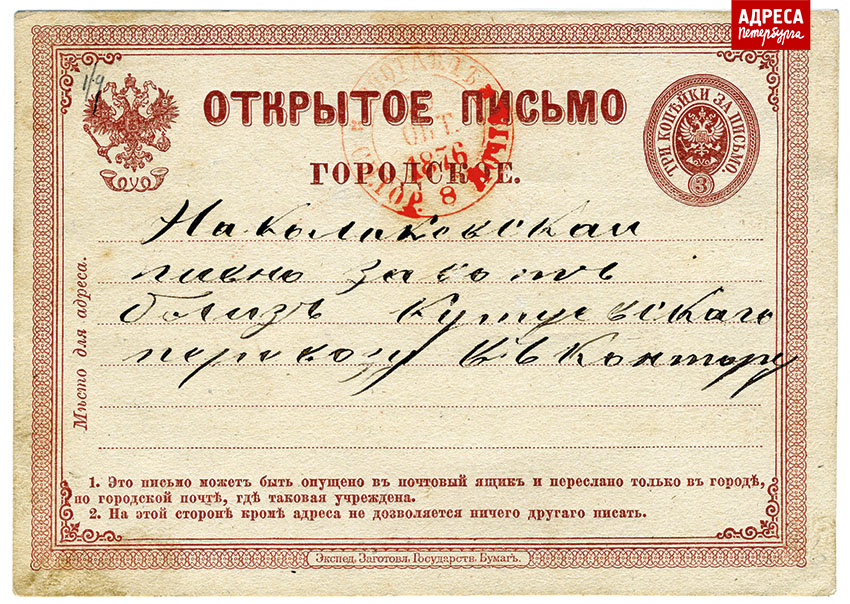 АДРЕСА
Петербурга
ОТКРЫТОЕ ПИСЬМО
ГОРОДСКОЕ.
ТРИ КОПѢЙКИ ЗА ПИСЬМО.
3
ОКТ.
1876
8
1/9
Мѣсто для адреса.
пивно заводъ
близъ
въ контору
1. Это письмо можетъ быть опущено въ почтовый ящикъ и переслано только въ городѣ,
по городской почтѣ, гдѣ таковая учреждена.
2. На этой сторонѣ кромѣ адреса не дозволяется ничего другаго писать.
Экспед. Заготовл. Государств. Бумагъ.